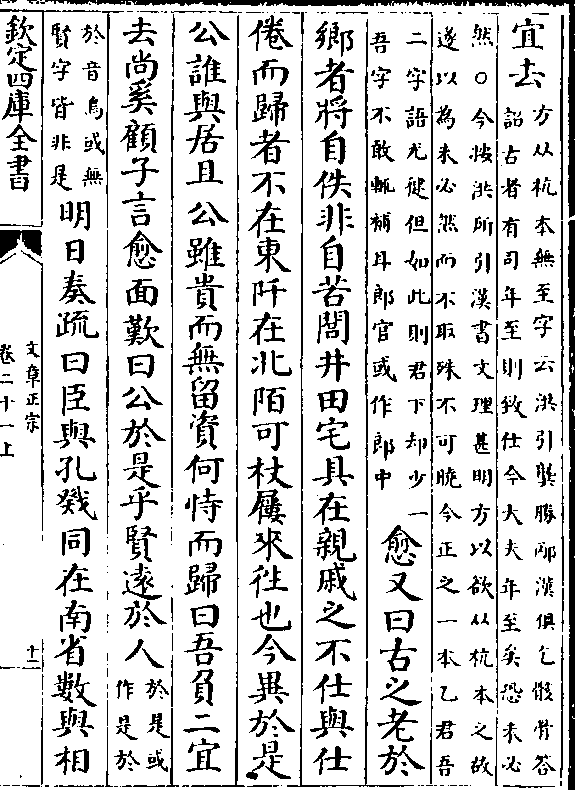 宜去
方从杭本無至字云洪引龔勝邴漢俱乞骸骨答
詔古者有司年至則致仕今大夫年至矣恐未必
然○今按洪所引漢書文理甚明方以欲从杭本之故
遂以為未必然而不取殊不可曉今正之一本乙君吾
二字語尤健但如此則君下却少一
吾字不敢輒補耳郎官或作郎中
愈又曰古之老於
鄉者將自佚非自苦閭井田宅具在親戚之不仕與仕
倦而歸者不在東阡在北陌可杖屨來往也今異於是
公誰與居且公雖貴而無留資何恃而歸曰吾負二宜
去尚奚顧子言愈面歎曰公於是乎賢遠於人
於是或
作是於
於音烏或無
賢字皆非是
明日奏疏曰臣與孔戣同在南省數與相
欽定四庫全書
文章正宗
卷二十一上
十二